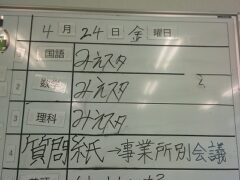 4月24日金曜日
1 国語 みえスタ
2 数学 みえスタ
3 理科 みえスタ
4 質問紙→事業所別会議